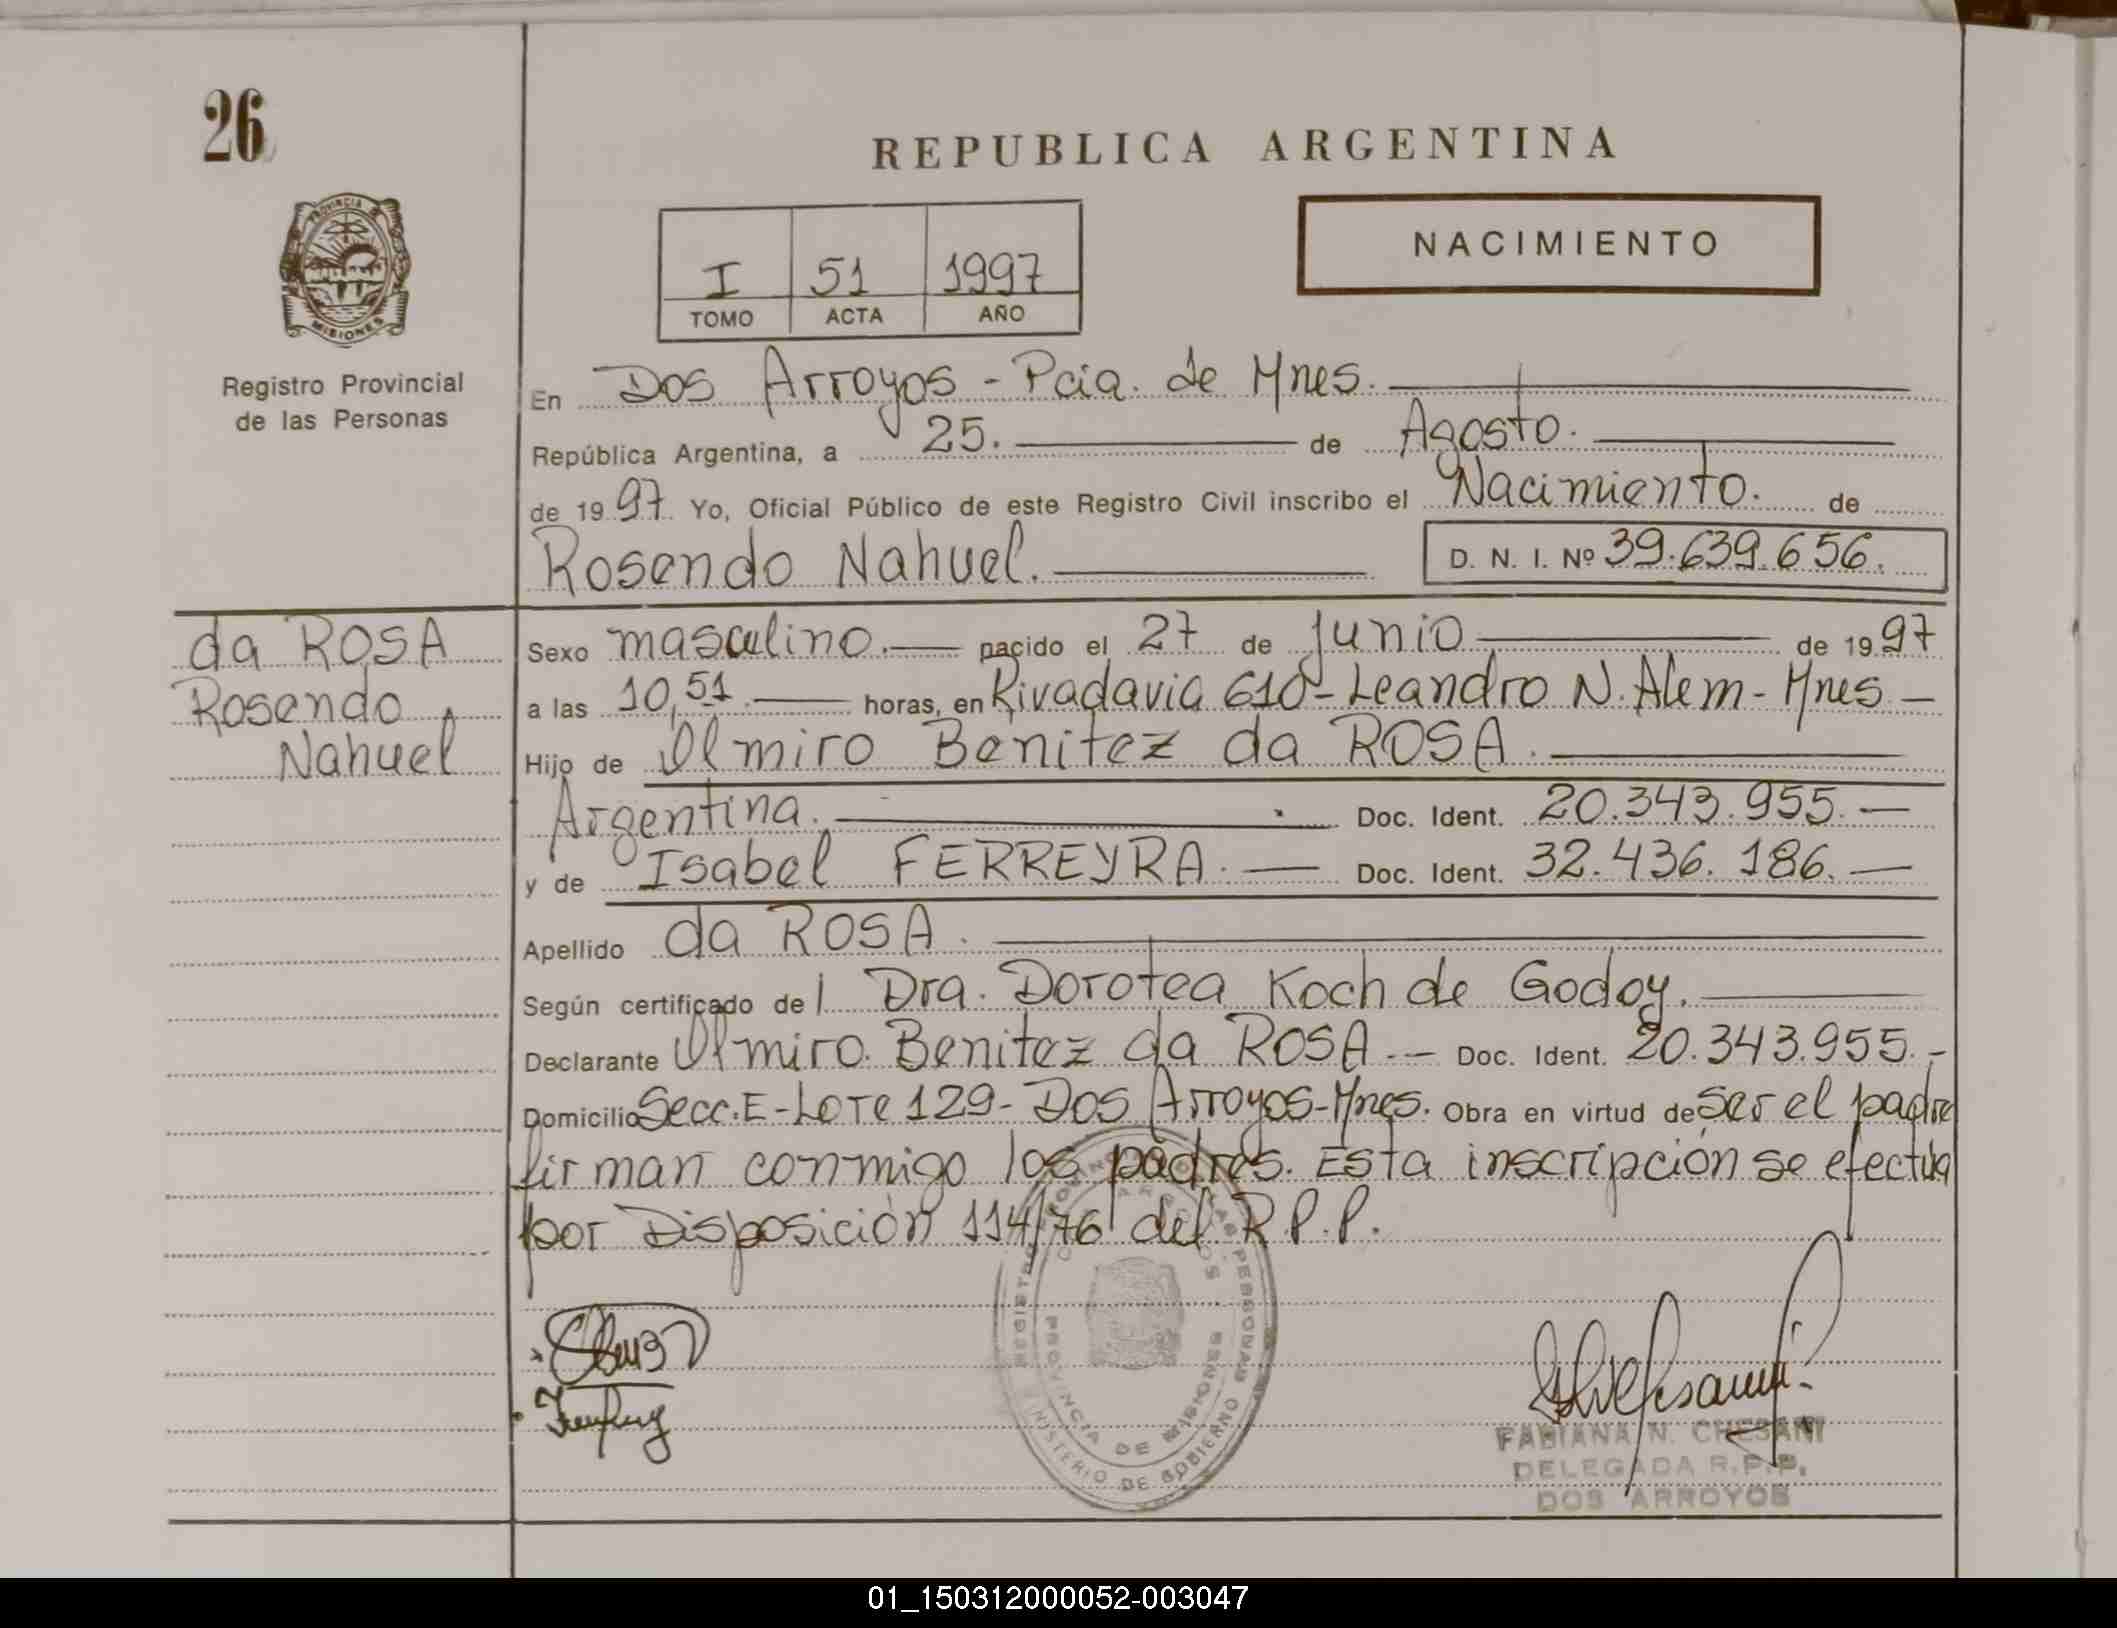 26
REPUBLICA ARGENTINA
PROVINCIA DE
MISIONES
Registro Provincial
de las Personas
NACIMIENTO
I 51 1997
TOMO ACTA AÑO
En Dos Arroyos - Pcia. de Mnes.
República Argentina, a 25. de Agosto.
de 1997. Yo, Oficial Público de este Registro Civil inscribo el Nacimiento. de
Rosendo Nahuel. D. N. I. Nº 39.639.656.
da ROSA
Rosendo
Nahuel
Sexo masculino. nacido el 27 de Junio de 1997
a las 10,51 horas, en Rivadavia 610 - Leandro N. Alem - Mnes -
Hijo de Olmiro Benitez da ROSA.
Argentina. Doc. Ident. 20.343.955. -
y de Isabel FERREYRA. - Doc. Ident. 32.436.186. -
Apellido da ROSA.
Según certificado del Dra. Dorotea Koch de Godoy.
Declarante Olmiro Benitez da ROSA. - Doc. Ident. 20.343.955. -
Domicilio Secc. E - Lote 129 - Dos Arroyos - Mnes. Obra en virtud de ser el padre
firman conmigo los padres. Esta inscripción se efectúa
por Disposición 114/76 del R.P.P.
REGISTRO PROVINCIAL DE LAS PERSONAS
MINISTERIO DE GOBIERNO
DOS ARROYOS
PROVINCIA DE MISIONES
FABIANA N. CHESANI
DELEGADA R.P.P.
DOS ARROYOS
01_150312000052-003047